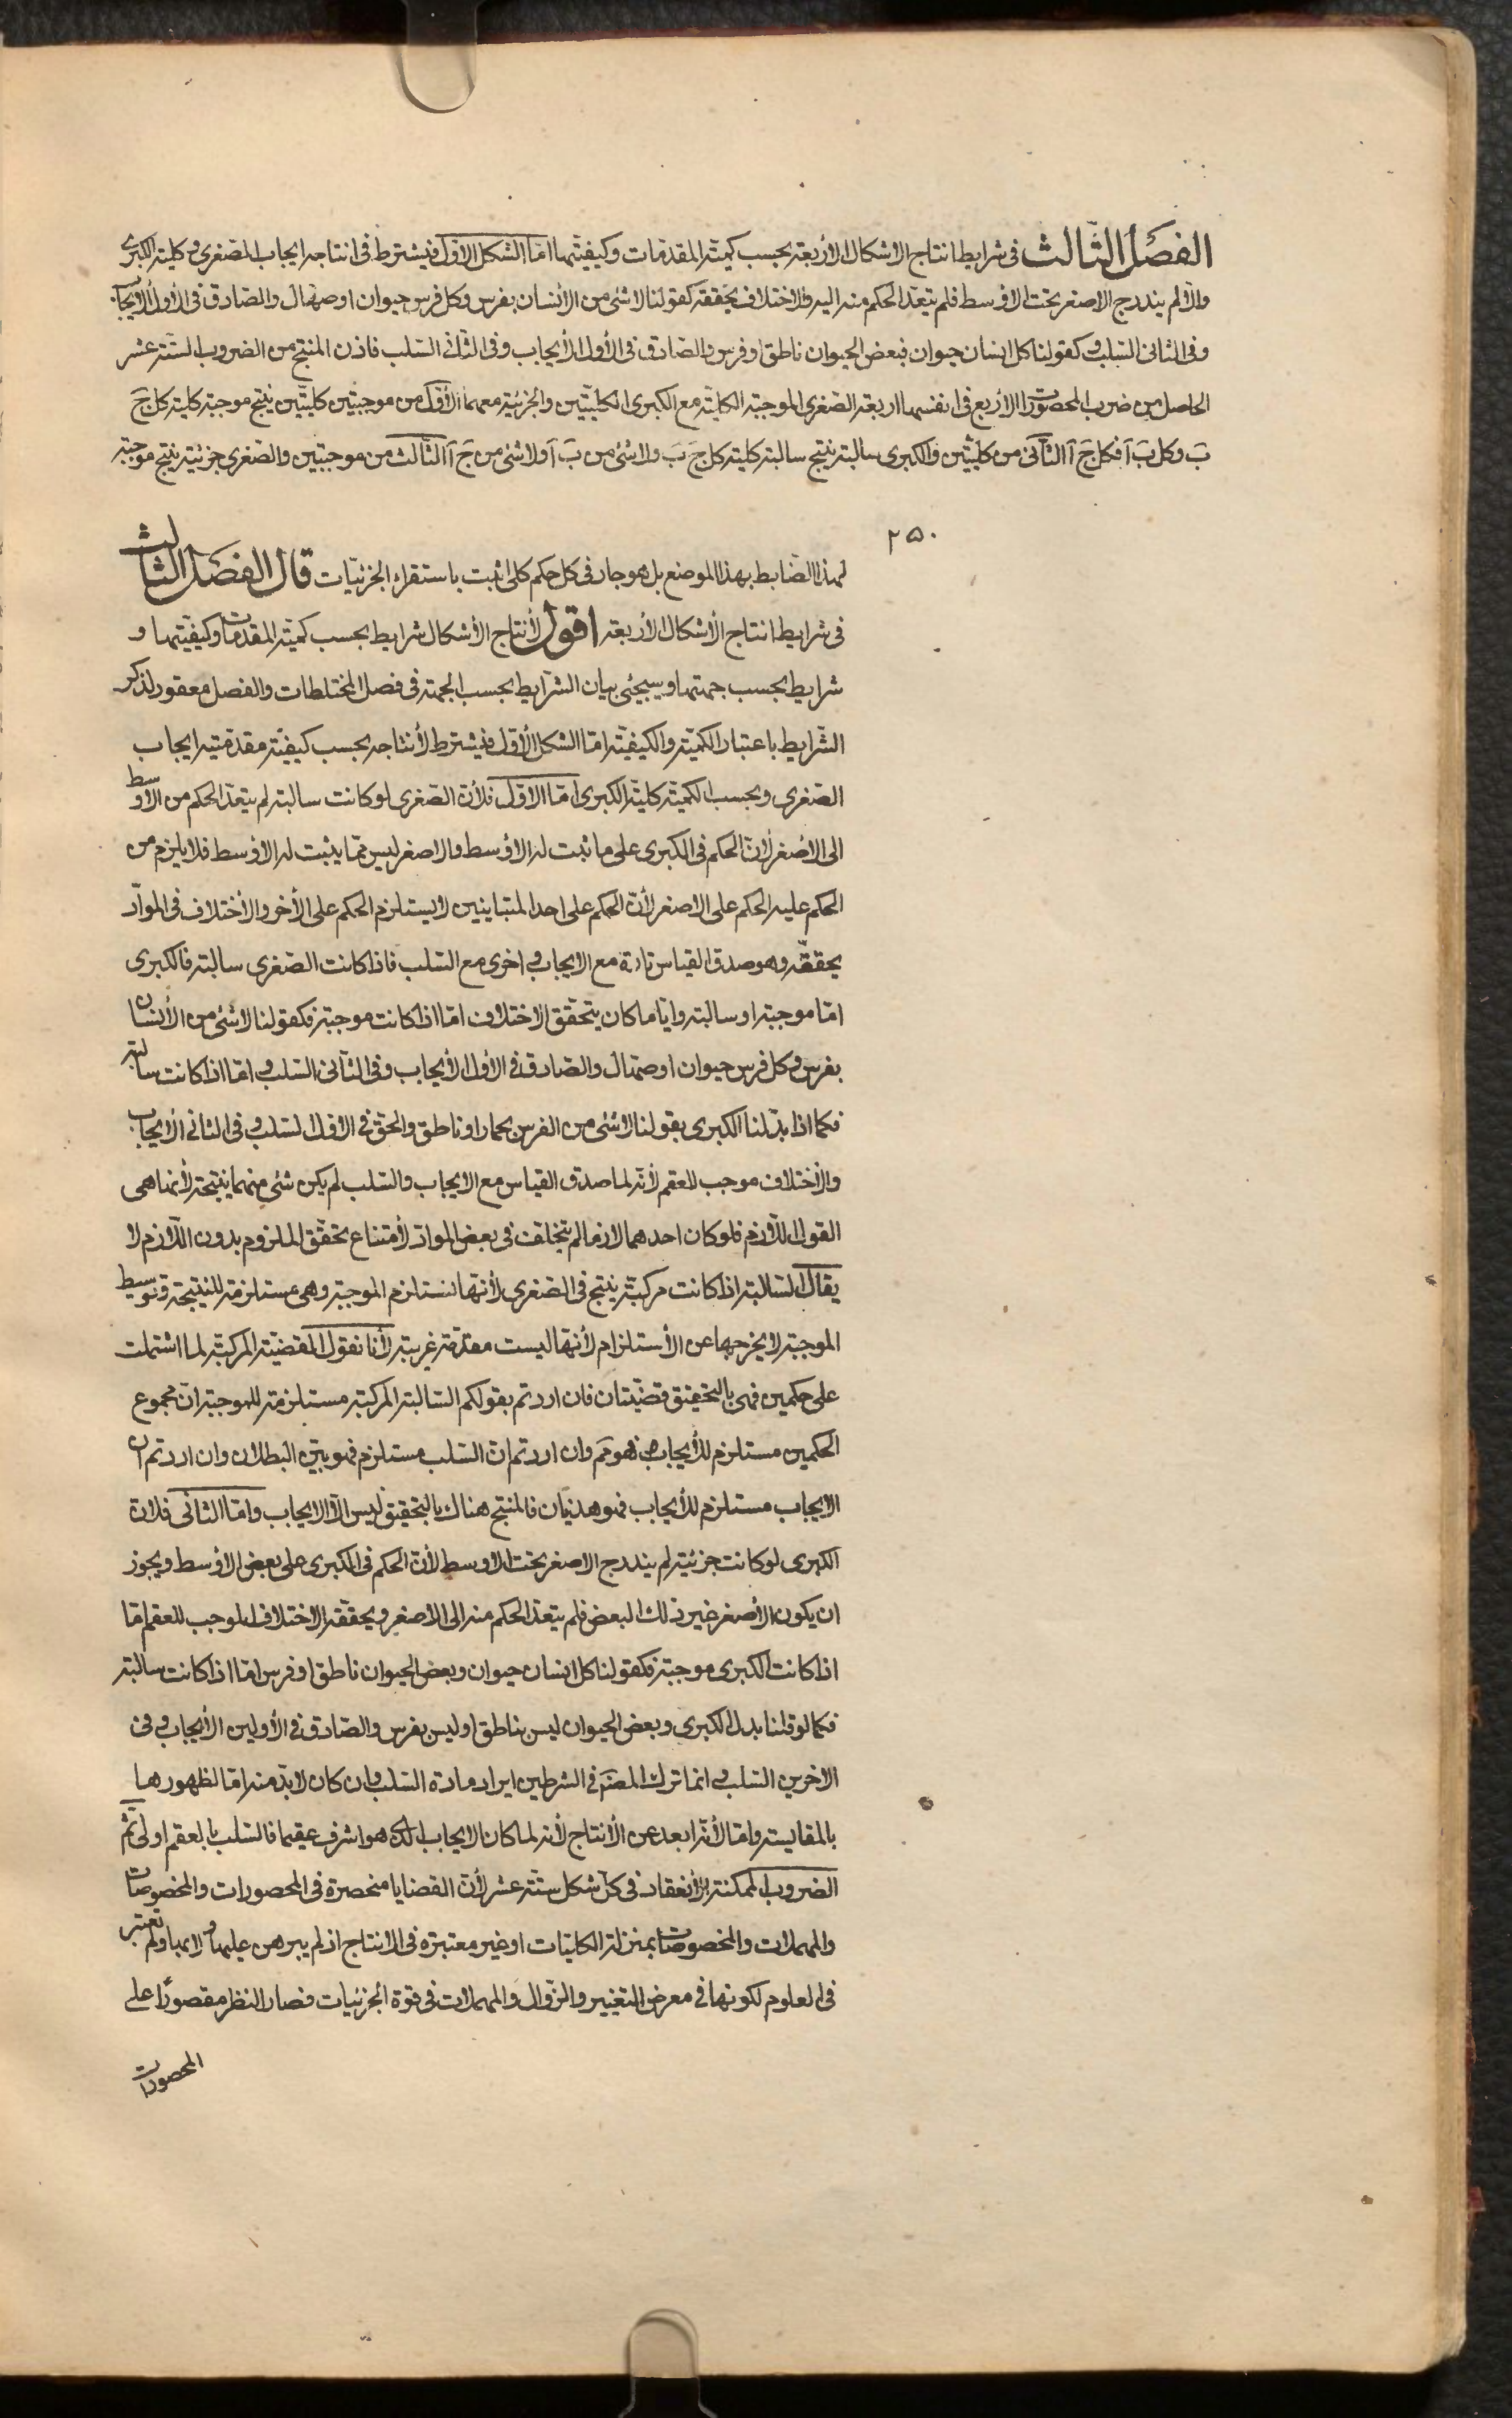 الفصل الثالث فى شرايط انتاج الاشكال الأربعة بحسب كمية المقدمات وكيفيتها اما الشكل الاول فيشترط فى انتاجه ايجاب الصغرى وكلية الكبرى
والا لم يندرج الاصغر تحت الاوسط فلم يتعد الحكم منه اليه والاختلاف يحققه كقولنا لا شئ من الأنسان بفرس وكل فرس حيوان او صهال والصادق فى الأول الأيجاب
وفى الثانى السلب وكقولنا كل انسان حيوان فبعض الحيوان ناطق او فرس والصادق فى الأول الأيجاب وفى الثانى السلب فاذن المنتج من الضروب الستة عشر
الحاصل من ضرب المحصورات الأربع فى انفسها اربعة الصغرى الموجبة الكلية مع الكبرى الكليتين والجزئية معهما الأول من موجبتين كليتين ينتج موجبة كلية كل ج
ب وكل ب آ فكل ج آ الثانى من كليتين والكبرى سالبة ينتج سالبة كلية كل ج ب ولا شئ من ب آ ولا شئ من ج آ الثالث من موجبتين والصغرى جزئية ينتج موجبة
٢٥٠
لهذا الضابط بهذا الموضع بل هو جار فى كل حكم كلى اثبت باستقراء الجزئيات قال الفصل الثالث
فى شرايط انتاج الأشكال الأربعة اقول لأنتاج الأشكال شرايط بحسب كمية المقدمات وكيفيتها و
شرايط بحسب جهتها وسيجئى بيان الشرايط بحسب الجهة فى فصل المختلطات والفصل معقود لذكر
الشرايط باعتبار الكمية والكيفية اما الشكل الأول فيشترط لأنتاجه بحسب كيفية مقدمتيه ايجاب
الصغرى وبحسب الكمية كلية الكبرى اما الاول فلأن الصغرى لو كانت سالبة لم يتعد الحكم من الاوسط
الى الأصغر لأن الحكم فى الكبرى على ما ثبت له الاوسط والاصغر ليس مما يثبت له الاوسط فلا يلزم من
الحكم عليه الحكم على الاصغر لأن الحكم على احد المتباينين لا يستلزم الحكم على الأخر والأختلاف فى المواد
يحققه وهو صدق القياس تارة مع الايجاب واخرى مع السلب فاذا كانت الصغرى سالبة فالكبرى
اما موجبة او سالبة وايا ما كان يتحقق الاختلاف اما اذا كانت موجبة فكقولنا لا شئ من الأنسان
بفرس وكل فرس حيوان او صهال والصادق فى الأول الأيجاب وفى الثانى السلب واما اذا كانت سالبة
فكما اذا بدلنا الكبرى بقولنا لا شئ من الفرس بحمار او ناطق والحق فى الاول السلب وفى الثانى الأيجاب
والأختلاف موجب للعقم لأنه لما صدق القياس مع الايجاب والسلب لم يكن شئ منهما ينتجة لأنها هى
القول اللازم فلو كان احدهما لازما لم يتخلف فى بعض المواد لأمتناع تحقق الملزوم بدون اللازم لا
يقال السالبة اذا كانت مركبة ينتج فى الصغرى لأنها تستلزم الموجبة وهى مستلزمة للنتيجة وتوسيط
الموجبة لا يخرجها عن الأستلزام لأنها ليست مقدمة غريبة لأنا نقول القضية المركبة لما اشتملت
على حكمين فهى بالتحقيق قضيتان فان اردتم بقولكم السالبة المركبة مستلزمة للموجبة ان مجموع
الحكمين مستلزم للأيجاب فهو مم وان اردتم ان السلب مستلزم فهو بين البطلان وان اردتم ان
الايجاب مستلزم للأيجاب فهو هذيان فالمنتج هناك بالتحقيق ليس الا الايجاب واما الثانى فلان
الكبرى لو كانت جزئية لم يندرج الاصغر تحت الاوسط لأن الحكم فى الكبرى على بعض الاوسط ويجوز
ان يكون الأصغر غير ذلك البعض فلم يتعد الحكم منه الى الاصغر ويحققه الاختلاف الموجب للعقم اما
اذا كانت الكبرى موجبة فكقولنا كل انسان حيوان وبعض الحيوان ناطق او فرس اما اذا كانت سالبة
فكما لو قلنا بدل الكبرى وبعض الحيوان ليس بناطق او ليس بفرس والصادق فى الأولين الأيجاب وفى
الاخرين السلب وانما ترك المصنم فى الشرطين ايراد مادة السلب وان كان لا بد منه اما لظهورها
بالمقايسة واما لأنه ابعد عن الأنتاج لأنه لما كان الايجاب الذى هو اشرف عقيما فالسلب بالعقم اولى ثم
الضروب الممكنة الأنعقاد فى كل شكل ستة عشر لأن القضايا منحصرة فى المحصورات والمخصوصات
والمهملات والمخصوصات بمنزلة الكليات او غير معتبرة فى الانتاج اذ لم يبرهن عليها ولا بها ولم تعتبر
فى العلوم لكونها فى معرض التغيير والزوال والمهملات فى قوة الجزئيات فصار النظر مقصورا على
المحصورات